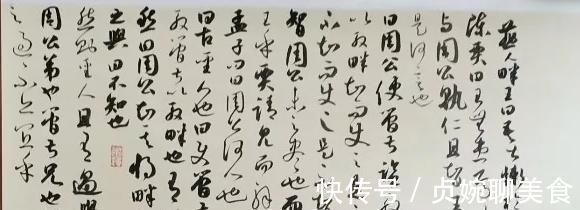 燕人畔王曰吾甚慚於
陳賈曰王無患焉王
與周公孰仁且智王
是何言也
曰周公使管叔監殷
以殷畔知而使之是
不知而使之是不
智周公未之盡也而
王乎賈請見而解
孟子問曰周公何人也
曰古聖人也曰使管叔
殷管叔以殷畔也有
然曰周公知其將畔
之與曰不知也
然則聖人且有過與
周公弟也管叔兄也
之過不亦宜乎
快传号／贞婉聊美食